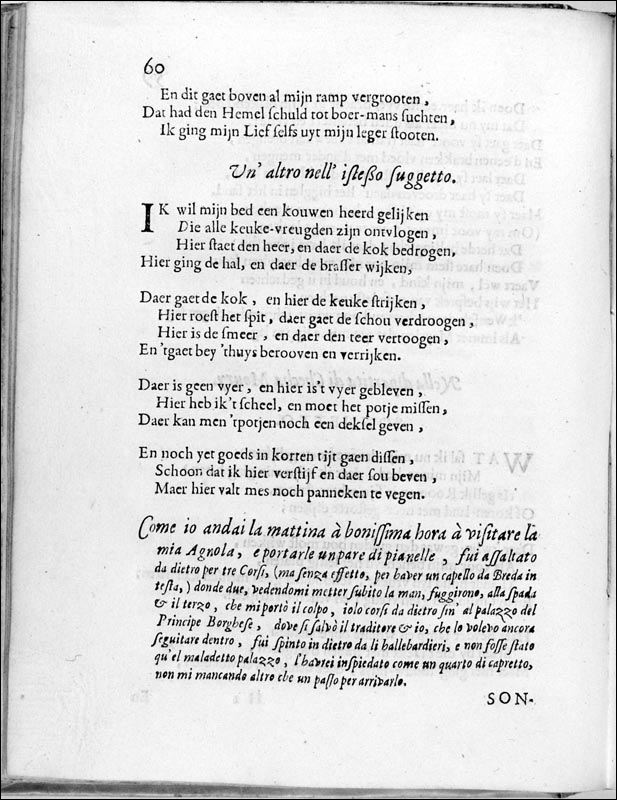 60
En dit gaet boven al mijn ramp vergrooten,
Dat had den Hemel schuld tot boer-mans suchten,
Ik ging mijn Lief selfs uyt mijn leger stooten.
Un' altro nell' istesso suggetto.
IK wil mijn bed een kouwen heerd gelijken
Die alle keuke-vreugden zijn ontvlogen,
Hier staet den heer, en daer de kok bedrogen,
Hier ging de hal, en daer de brasser wijken,
Daer gaet de kok, en hier de keuke strijken,
Hier roest het spit, daer gaet de schou verdroogen,
Hier is de smeer, en daer den teer vertoogen,
En 'tgaet bey 'thuys berooven en verrijken.
Daer is geen vyer, en hier is't vyer gebleven,
Hier heb ik 't scheel, en moet het potje missen,
Daer kan men 'tpotjen noch een deksel geven,
En noch yet goeds in korten tijt gaen dissen,
Schoon dat ik hier verstijf en daer sou beven,
Maer hier valt mes noch panneken te vegen.
Come io andai la mattina à bonissima hora à visitare la
mia Agnola, e portarle un pare di pianelle, fui assaltato
da dietro per tre Corsi, (ma senza effetto, per haver un capello da Breda in
testa,) donde due, vedendomi metter subito la man, fuggirono, alla spada
& il terzo, che mi portò il colpo, io lo corsi da dietro sin' al palazzo del
Principe Borghese, dove si salvò il traditore & io, che lo volevo ancora
seguitare dentro, fui spinto in dietro da li hallebardieri, e non fosse stato
qu'el maladetto palazzo, l'havrei inspiedato come un quarto di capretto,
non mi mancando altro che un passo per arrivarlo.
SON-